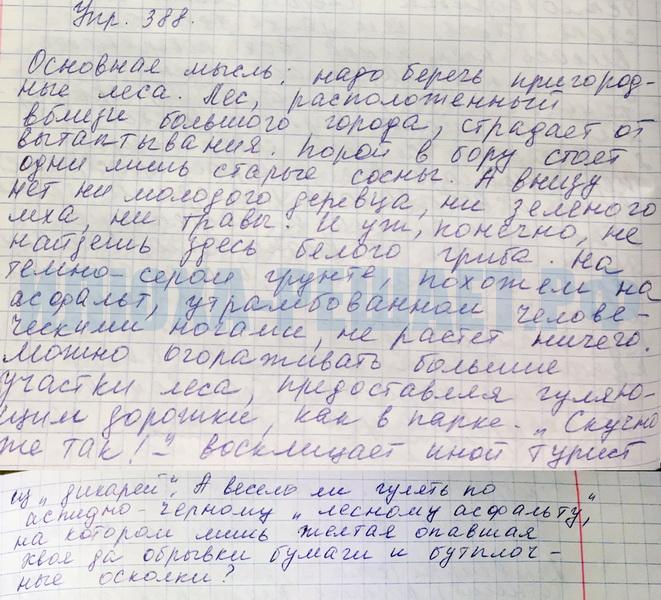 Упр. 388.
Основная мысль: надо беречь пригород-
ные леса. Лес, расположенный
вблизи большого города, страдает от
вытаптывания. Порой в бору стоят
одни лишь старые сосны. А внизу
нет ни молодого деревца, ни зеленого
мха, ни травы. И уж, конечно, не
найдешь здесь белого гриба. На
темно-сером грунте, похожем на
асфальт, утрамбованном челове-
ческими ногами, не растет ничего.
Можно огораживать большие
участки леса, предоставляя гуляю-
щим дорожки, как в парке. „Скучно
же так!" - восклицает иной турист
из „дикарей". А весело ли гулять по
аспидно-черному „лесному асфальту",
на котором лишь желтая опавшая
хвоя да обрывки бумаги и бутылоч-
ные осколки?